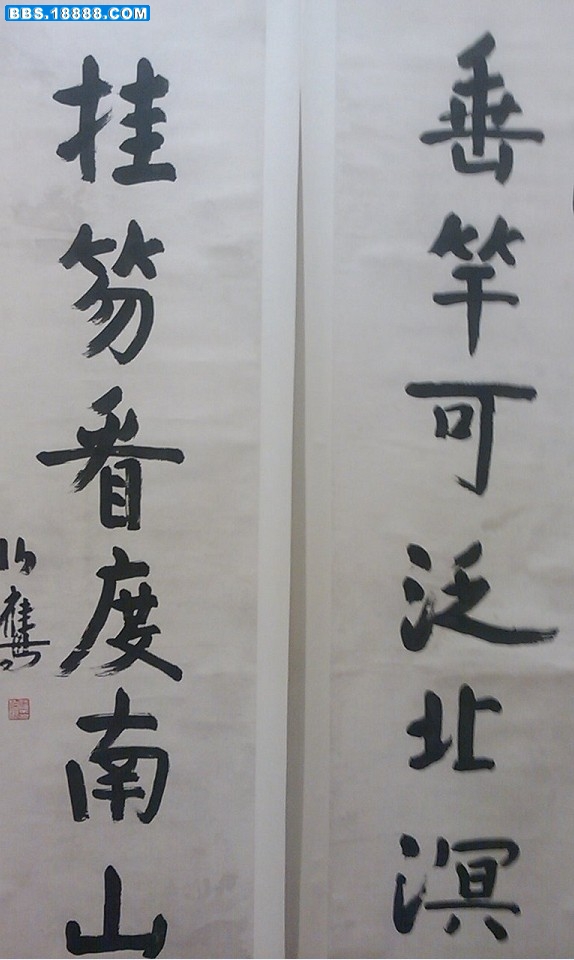 BBS.18888.COM
垂竿可泛北溟
挂笏看度南山